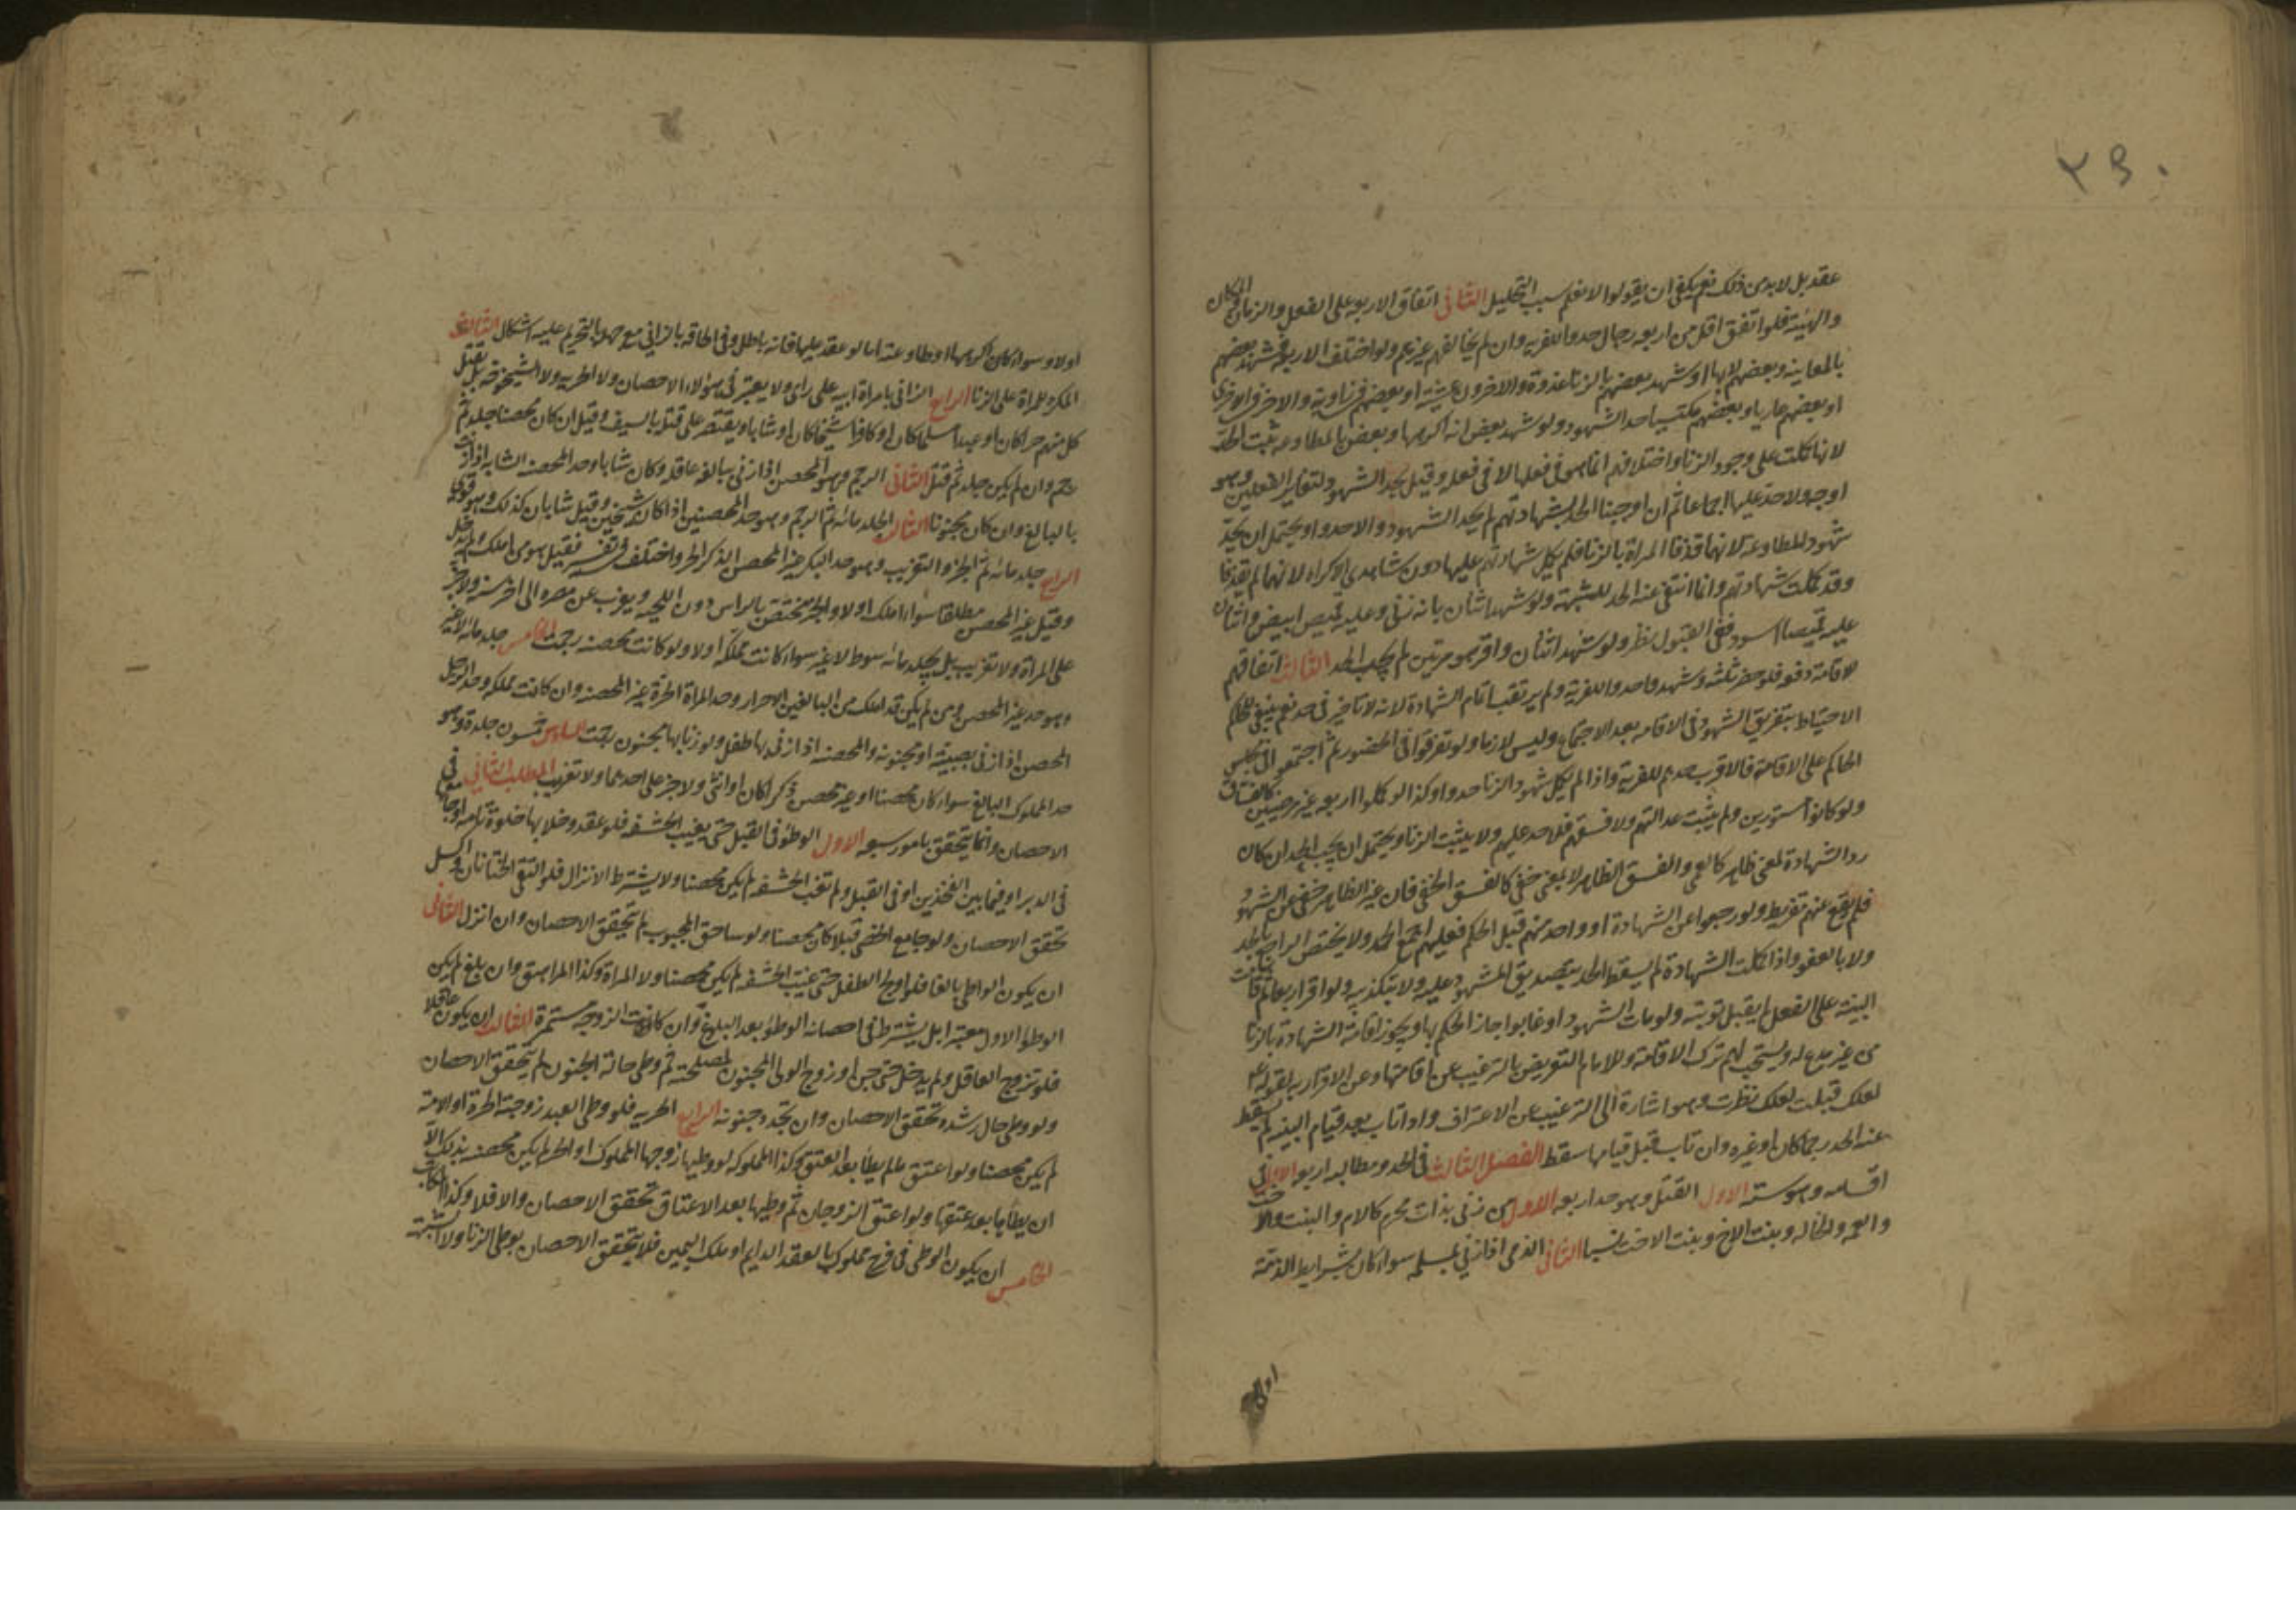 ٢٥٠
عقد بل لا بد من ذلك نعم يكفي ان يقولوا لا نعلم سبب التحليل الثاني اتفاق الاربعة على الفعل والزمان والمكان
والهيئة فلو اتفق اقل من اربعة رجال حدوا للفرية وان لم يخالفهم غيرهم ولو اختلف الاربعة فشهد بعضهم
بالمعاينة وبعضهم لا بها او شهد بعضهم بالزنا غدوة والاخرون عشية او بعضهم في زاوية والاخر في الاخرى
او بعضهم عاريا وبعضهم مكتسيا حد الشهود ولو شهد بعض انه اكرهها وبعض بالمطاوعة ثبت الحد
لانها كملت على وجود الزنا واختلافهم انما هو في فعلها لا في فعله وقيل يحد الشهود لتغاير الفعلين وهو
اوجه ولا حد عليها اجماعا ثم ان اوجبنا الحد بشهادتهم لم يحد الشهود والا حدوا ويحتمل ان يحد
شهود المطاوعة لانهما قذفا المراة بالزنا فلم يكمل شهادتهم عليها دون شاهدي الاكراه لانهما لم يقذفا
وقد كملت شهادتهم وانما انتفى عنه الحد للشبهة ولو شهد اثنان بانه زنى وعليه قميص ابيض واثنان
عليه قميصا اسود ففي القبول نظر ولو شهد اثنان واقر هو مرتين لم يجب الحد الثالث اتفاقهم
لاقامة دفعة فلو حضر ثلثة وشهدوا حدوا للفرية ولم يرتقب اتمام الشهادة لانه لا تاخير في حد نعم ينبغي للحاكم
الاحتياط بتفريق الشهود في الاقامة بعد الاجتماع وليس لازما ولو تفرقوا في الحضور ثم اجتمعوا في مجلس
الحاكم على الاقامة فالاقرب حدهم للفرية واذا لم يكمل شهود الزنا حدوا وكذا لو كملوا اربعة غير مرضيين كالفساق
ولو كانوا مستورين ولم يثبت عدالتهم ولا فسقهم فلا حد عليهم ولا يثبت الزنا ويحتمل ان يجب الحد ان كان
رد الشهادة لمعنى ظاهر كالعمى والفسق الظاهر لا لمعنى خفي كالفسق الخفي فان غير الظاهر خفي عن الشهود
فلم يقع عنهم تفريط ولو رجعوا عن الشهادة او واحد منهم قبل الحكم فعليهم اجمع الحد ولا يختص الراجع بالحد
ولا بالعفو واذا كملت الشهادة لم يسقط الحد بتصديق المشهود عليه ولا بتكذيبه ولو اقر اربعا ثم قامت
البينة على الفعل لم يقبل توبته ولو مات الشهود او غابوا جاز الحكم بها ويجوز اقامة الشهادة بالزنا
من غير مدع له ويستحب لهم ترك الاقامة وللامام التعريض بالترغيب عن اقامتها وعن الاقرار به لقوله ع
لعلك قبلت لعلك نظرت وهو اشارة الى الترغيب عن الاعتراف واذا تاب بعد قيام البينة لم يسقط
عنه الحد رجما كان او غيره وان تاب قبل قيامها سقط الفصل الثالث في الحد ومطالبه اربعة الاول في
اقسامه وهو ستة الاول القتل وهو حد اربعة الاول من زنى بذات محرم كالام والبنت والاخت
والعمة والخالة وبنت الاخ وبنت الاخت نسبا الثاني الذمي اذا زنى بمسلمة سواء كان بشرايط الذمة
اولا
اولا وسواء كان اكرهها او طاوعته اما لو عقد عليها فانه باطل وفي الحاقه بالزاني مع جهله بالتحريم عليه اشكال الثالث
المكره للمراة على الزنا الرابع الزاني بامراة ابيه على راي ولا يعتبر في هؤلاء الاحصان ولا الحرية ولا الشيخوخة بل يقتل
كل منهم حرا كان او عبدا مسلما كان او كافرا شيخا كان او شابا ويقتصر على قتله بالسيف وقيل ان كان محصنا جلد ثم
رجم وان لم يكن جلد ثم قتل الثاني الرجم وهو المحصن اذا زنى ببالغة عاقلة وكان شابا وحد المحصنة الشابة اذا زنت
بالبالغ وان كان مجنونا الثالث الجلد مائة ثم الرجم وهو حد المحصنين اذا كانا شيخين وقيل شابان كذلك وهو قوي
الرابع جلد مائة ثم الجز والتغريب وهو حد البكر غير المحصن الذكر الحر واختلف في تفسيره فقيل هو من املك ولم يدخل
وقيل غير المحصن مطلقا سواء املك اولا والجز مختص بالراس دون اللحية ويغرب عن مصره الى اخر سنة ولا جز
على المراة ولا تغريب بل يجلد مائة سوط لا غير سواء كانت مملكة اولا ولو كانت محصنة رجمت الخامس جلد مائة لا غير
وهو حد غير المحصن ومن لم يكن قد املك من البالغين الاحرار وحد المراة الحرة غير المحصنة وان كانت مملكة وحد الرجل
المحصن اذا زنى بصبية او مجنونة والمحصنة اذا زنى بها طفل ولو زنا بها مجنون رجمت السادس خمسون جلدة وهو
حد المملوك البالغ سواء كان محصنا او غير محصن ذكرا كان او انثى ولا جز على احدهما ولا تغريب المطلب الثاني في
الاحصان وانما يتحقق بامور سبعة الاول الوطئ في القبل حتى يغيب الحشفة فلو عقد وخلا بها خلوة تامة او جامعها
في الدبر او فيما بين الفخذين او في القبل ولم تغب الحشفة لم يكن محصنا ولا يشترط الانزال فلو التقى الختانان واكسل
تحقق الاحصان ولو جامع الخصي قبلا كان محصنا ولو ساحق المجبوب لم يتحقق الاحصان وان انزل الثاني
ان يكون الواطي بالغا فلو اولج الطفل حتى غيب الحشفة لم يكن محصنا ولا المراة وكذا المراهق وان بلغ لم يكن
الوطؤ الاول معتبرا بل يشترط في احصانه الوطؤ بعد البلوغ وان كانت الزوجية مستمرة الثالث ان يكون عاقلا
فلو تزوج العاقل ولم يدخل حتى جن او زوج الولي المجنون لمصلحته ثم وطى حالة الجنون لم يتحقق الاحصان
ولو وطى حال رشده تحقق الاحصان وان تجدد جنونه الرابع الحرية فلو وطى العبد زوجته الحرة او الامة
لم يكن محصنا ولو اعتق ما لم يطا بعد العتق وكذا المملوكة لو وطيها زوجها المملوك او الحر لم يكن محصنة بذلك الا
ان يطاها بعد عتقها ولو اعتق الزوجان ثم وطيها بعد الاعتاق تحقق الاحصان والا فلا وكذا المكاتب
الخامس ان يكون الوطى في فرج مملوك بالعقد الدايم او ملك اليمين فلا يتحقق الاحصان بوطى الزنا ولا الشبهة